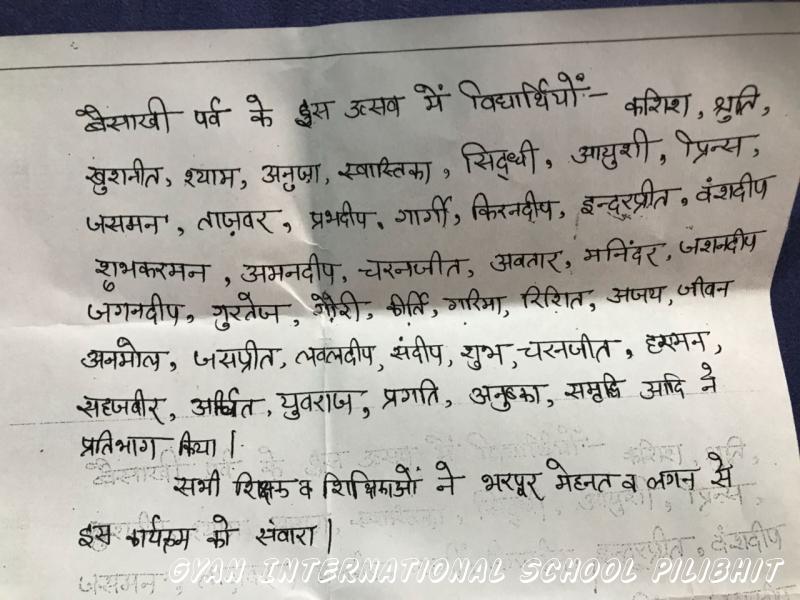 बैसाखी पर्व के इस उत्सव में विद्यार्थियों:- कशिश, श्रुति,
खुशनीत, श्याम, अनुजा, स्वास्तिका, सिद्धी, आयुशी, प्रिन्स,
जसमन, ताज़वर, प्रभदीप, गार्गी, किरनदीप, इन्दरप्रीत, वंशदीप
शुभकरमन, अमनदीप, चरनजीत, अवतार, मनिंदर, जशनदीप
जगनदीप, गुरतेज, गौरी, कीर्ति, गरिमा, रिशित, अजय, जीवन
अनमोल, जसप्रीत, लवलदीप, संदीप, शुभ, चरनजीत, हरमन,
सहजवीर, अर्चित, युवराज, प्रगति, अनुष्का, समृद्धि आदि ने
प्रतिभाग किया।
सभी शिक्षक व शिक्षिकाओं ने भरपूर मेहनत व लगन से
इस कार्यक्रम को संवारा।
GYAN INTERNATIONAL SCHOOL PILIBHIT